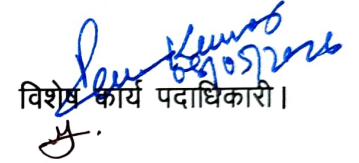 Kumar
05/2026
विशेष कार्य पदाधिकारी।